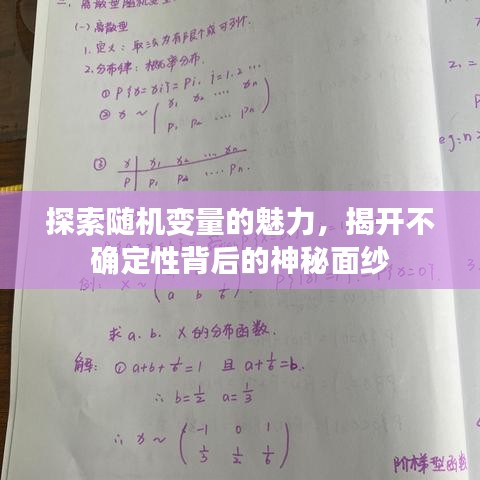 二、离散型随机变
(一) 离散型
1. 定义: 取法为有限个或可列个.
2. 分布律: 概率分布.
① P{x=xi}=pi, i=1.2...
② x ~ ( x₁ x₂ ... xn
p₁ p₂ ... pn )
③ x | x₁ x₂ ... xn
P | p₁ p₂ ... pn.
探索随机变量的魅力，揭开不
确定性背后的神秘面纱
求 a. b. X 的分布函数.
解: ① a+b+1/6=1 且 a+1/6=b.
∴ b=1/2 a=1/3
∴ x ~ ( -1 0 1
1/3 1/2 1/6 )
2. =
eg: n=
3.
阶梯型函数